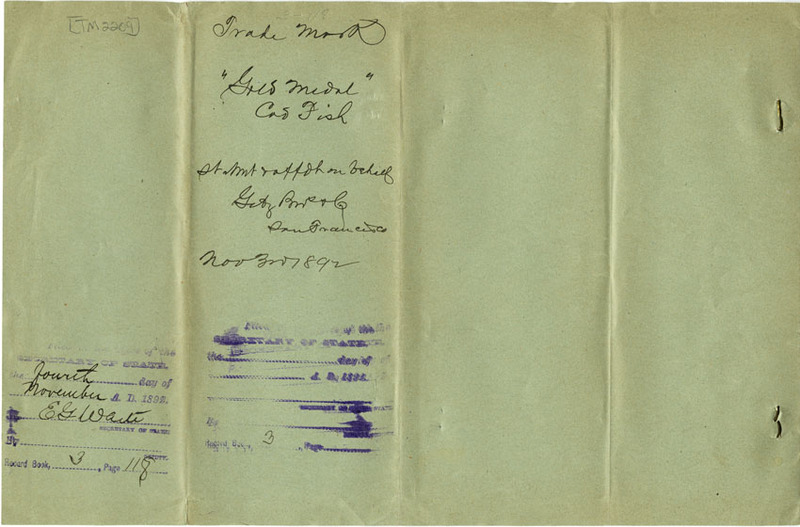 [TM2209]
Trade Mark
"Gold Medal"
Cod Fish
St ment & affdt on behalf
Getz Bros & Co
San Francisco
Nov 3rd 1892
of the
SECRETARY OF STATE
the fourth day of
November A. D. 1892.
E G Waite
SECRETARY OF STATE
By
DEPUTY.
Record Book, 3, Page 118
of the
SECRETARY OF STATE
the day of
A. D. 189
SECRETARY OF STATE
By
Record Book, 3 Page